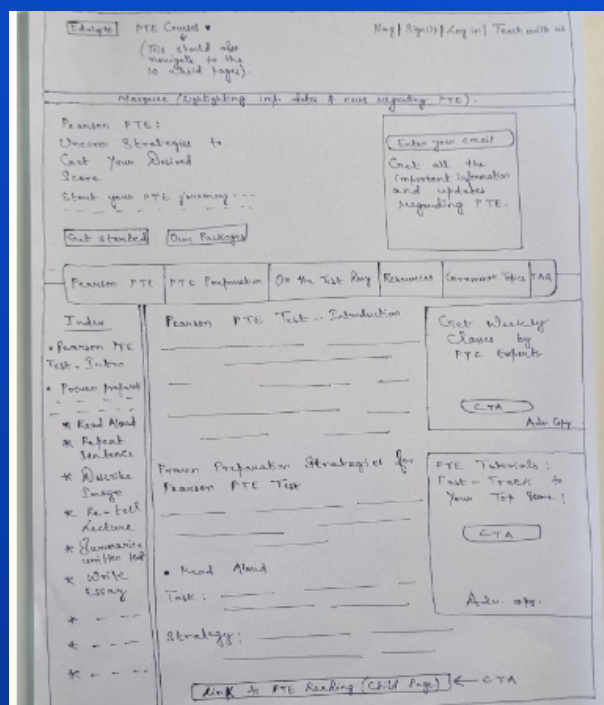 PTE Courses
(This should also
navigate to the
10 child pages).
Sign Up | Log in | Teach with us
Marquee (highlighting imp. dates & news regarding PTE).
Pearson PTE:
Uncover Strategies to
Get Your Desired
Score
Start your PTE journey ---
Get Started
Our Packages
Enter your email
Get all the
important information
and updates
regarding PTE.
Pearson PTE
PTE Preparation
On the Test Day
Resources
Grammar Topics
FAQ
Index
• Pearson PTE
Test - Intro
• Proven
* Read Aloud
* Repeat
Sentence
* Describe
Image
* Re-tell
Lecture
* Summarise
written text
* Write
Essay
* - - -
* - - -
* - - -
Pearson PTE Test - Introduction
Proven Preparation Strategies for
Pearson PTE Test
• Read Aloud
Task:
Strategy:
Link to PTE Reading (Child Page) ← CTA
Get Weekly
Classes by
PTE Experts
CTA
Adv. Copy
PTE Tutorials:
Fast-Track to
Your Top Score!
CTA
Adv.